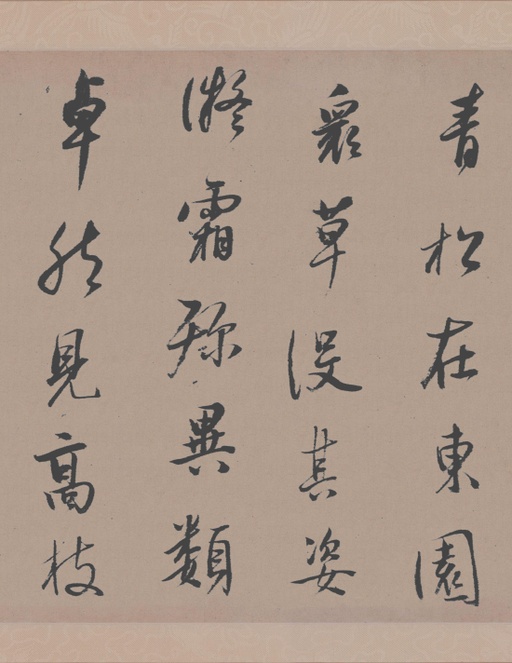 青松在東園
衆草沒其姿
凝霜殄異類
卓然見高枝